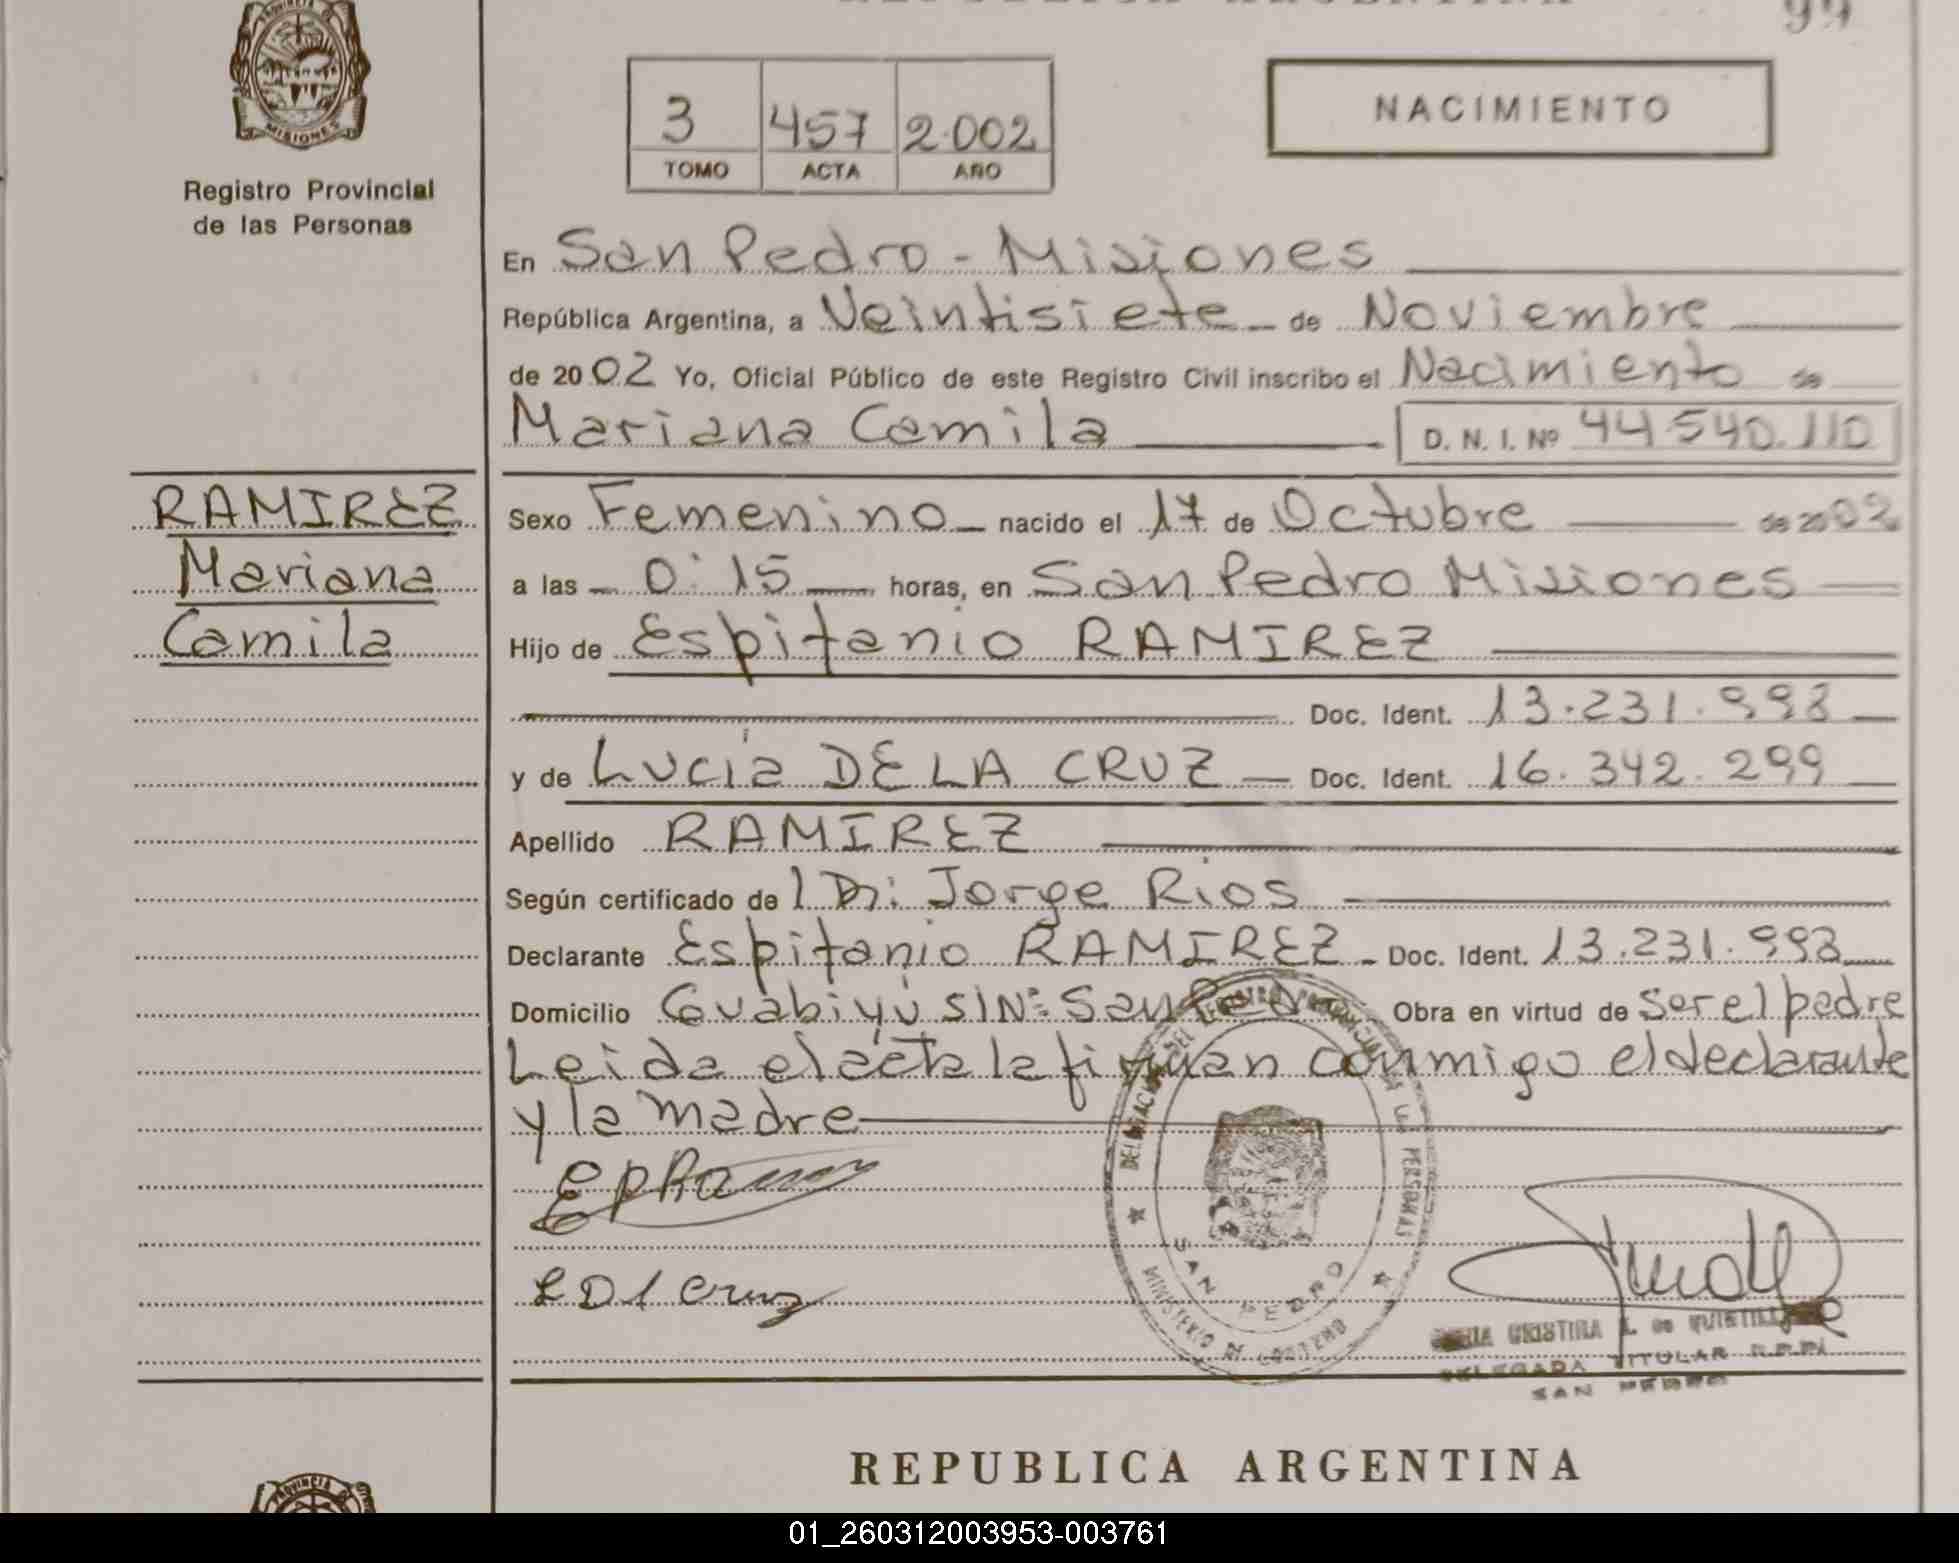 REPUBLICA ARGENTINA
99
PROVINCIA DE
MISIONES
Registro Provincial
de las Personas
3 457 2.002
TOMO ACTA AÑO
NACIMIENTO
En San Pedro - Misiones
República Argentina, a Veintisiete de Noviembre
de 2002 Yo, Oficial Público de este Registro Civil inscribo el Nacimiento de
Mariana Camila D. N. I. Nº 44540.110
RAMIREZ
Mariana
Camila
Sexo Femenino nacido el 17 de Octubre de 2002
a las 0:15 horas, en San Pedro Misiones
Hijo de Espitanio RAMIREZ
Doc. Ident. 13.231.993
y de Lucía DE LA CRUZ Doc. Ident. 16.342.299
Apellido RAMIREZ
Según certificado de l Dr: Jorge Rios
Declarante Espitanio RAMIREZ Doc. Ident. 13.231.993
Domicilio Guabiyú S/Nº San Pedro Obra en virtud de ser el padre
Leida el acta la firman conmigo el declarante
y la madre
L D l Cruz
DELEGACION DEL REGISTRO PROVINCIAL DE LAS PERSONAS
SAN PEDRO
MINISTERIO DE GOBIERNO
CRISTINA
DELEGADA TITULAR R.P.P.
SAN PEDRO
REPUBLICA ARGENTINA
PROVINCIA DE
01_260312003953-003761